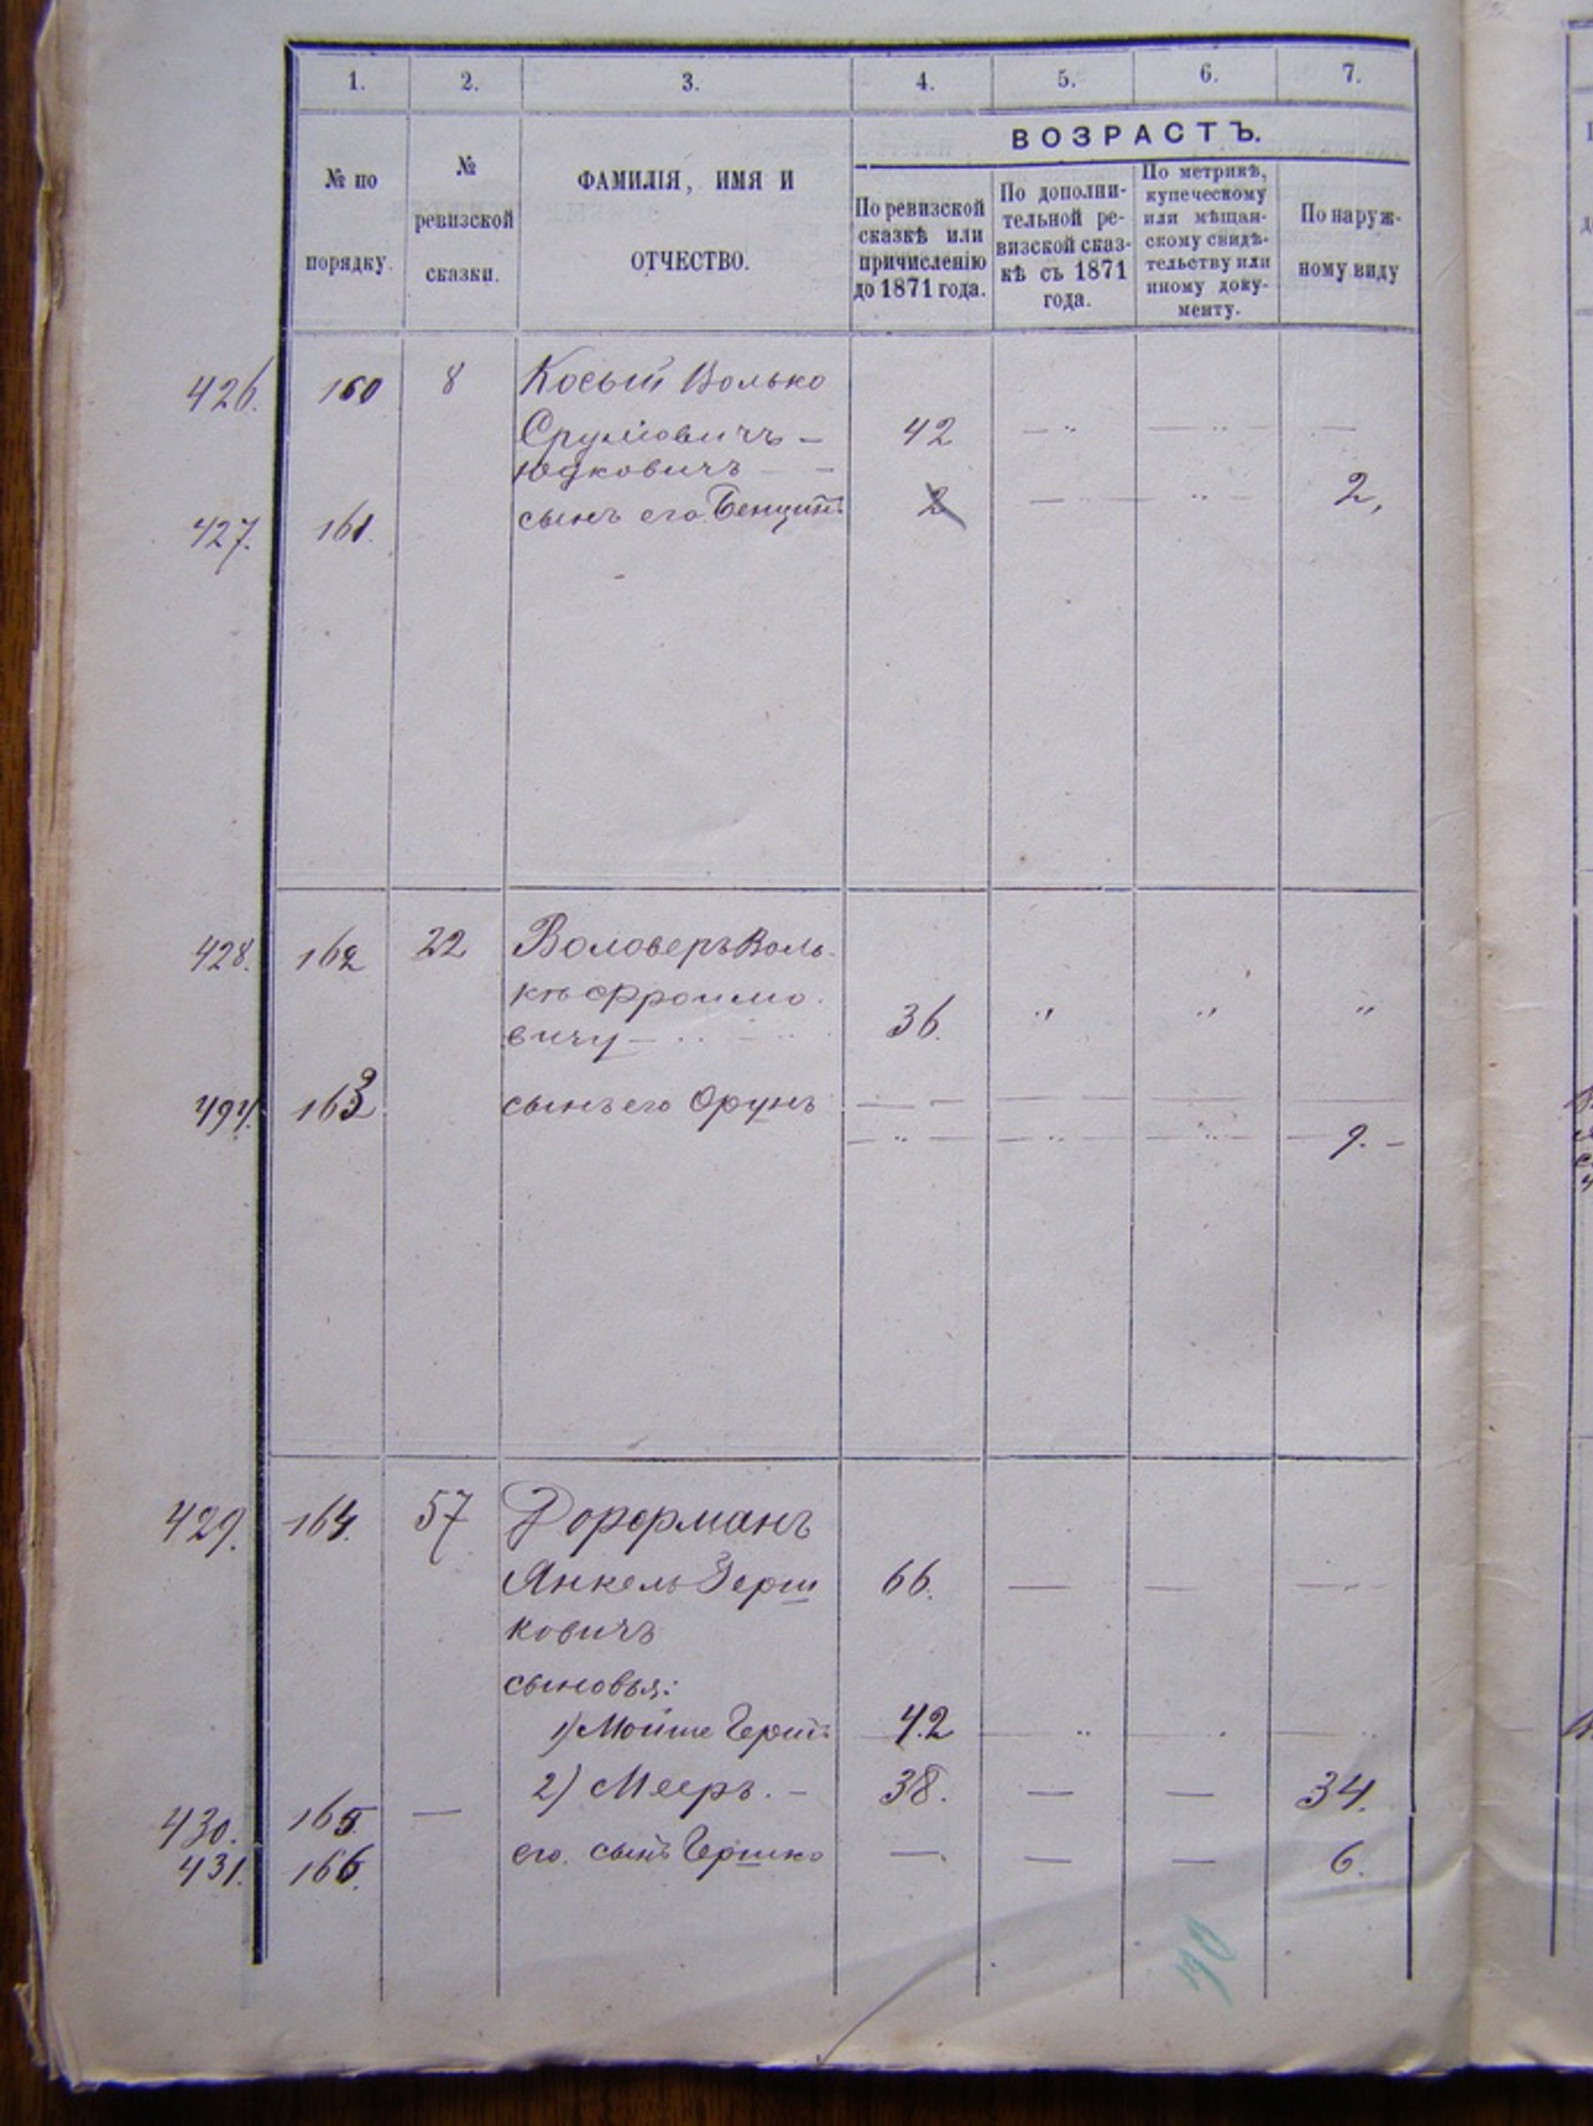 1. 2. 3. 4. 5. 6. 7.
№ по
порядку.
№
ревизской
сказки.
ФАМИЛІЯ, ИМЯ И
ОТЧЕСТВО.
ВОЗРАСТЪ.
По ревизской
сказкѣ или
причисленію
до 1871 года.
По дополни-
тельной ре-
визской сказ-
кѣ съ 1871
года.
По метрикѣ,
купеческому
или мѣщан-
скому свидѣ-
тельству или
иному доку-
менту.
По наруж-
ному виду
426. 160 8 Косый Волько
Сруліовичъ — 42 — " — " — —
Юдковичъ — —
427. 161. сынъ его Бенционъ 2 — — " — 2,
428. 162 22 Воловеръ Воль-
кѣ Фроимо-
вичу — 36. " " "
сынъ его Орунъ — — — — — —
163 — " — — " — — " — 9. —
429. 164. 57 Дорфманъ
Янкель Герш
ковичъ 66. — — —
сыновья:
1) Мойше Герш 42 — " — . — "
430. 165. — 2) Мееръ. — 38. — — 34.
431. 166. его сынъ Гершко — — — 6.